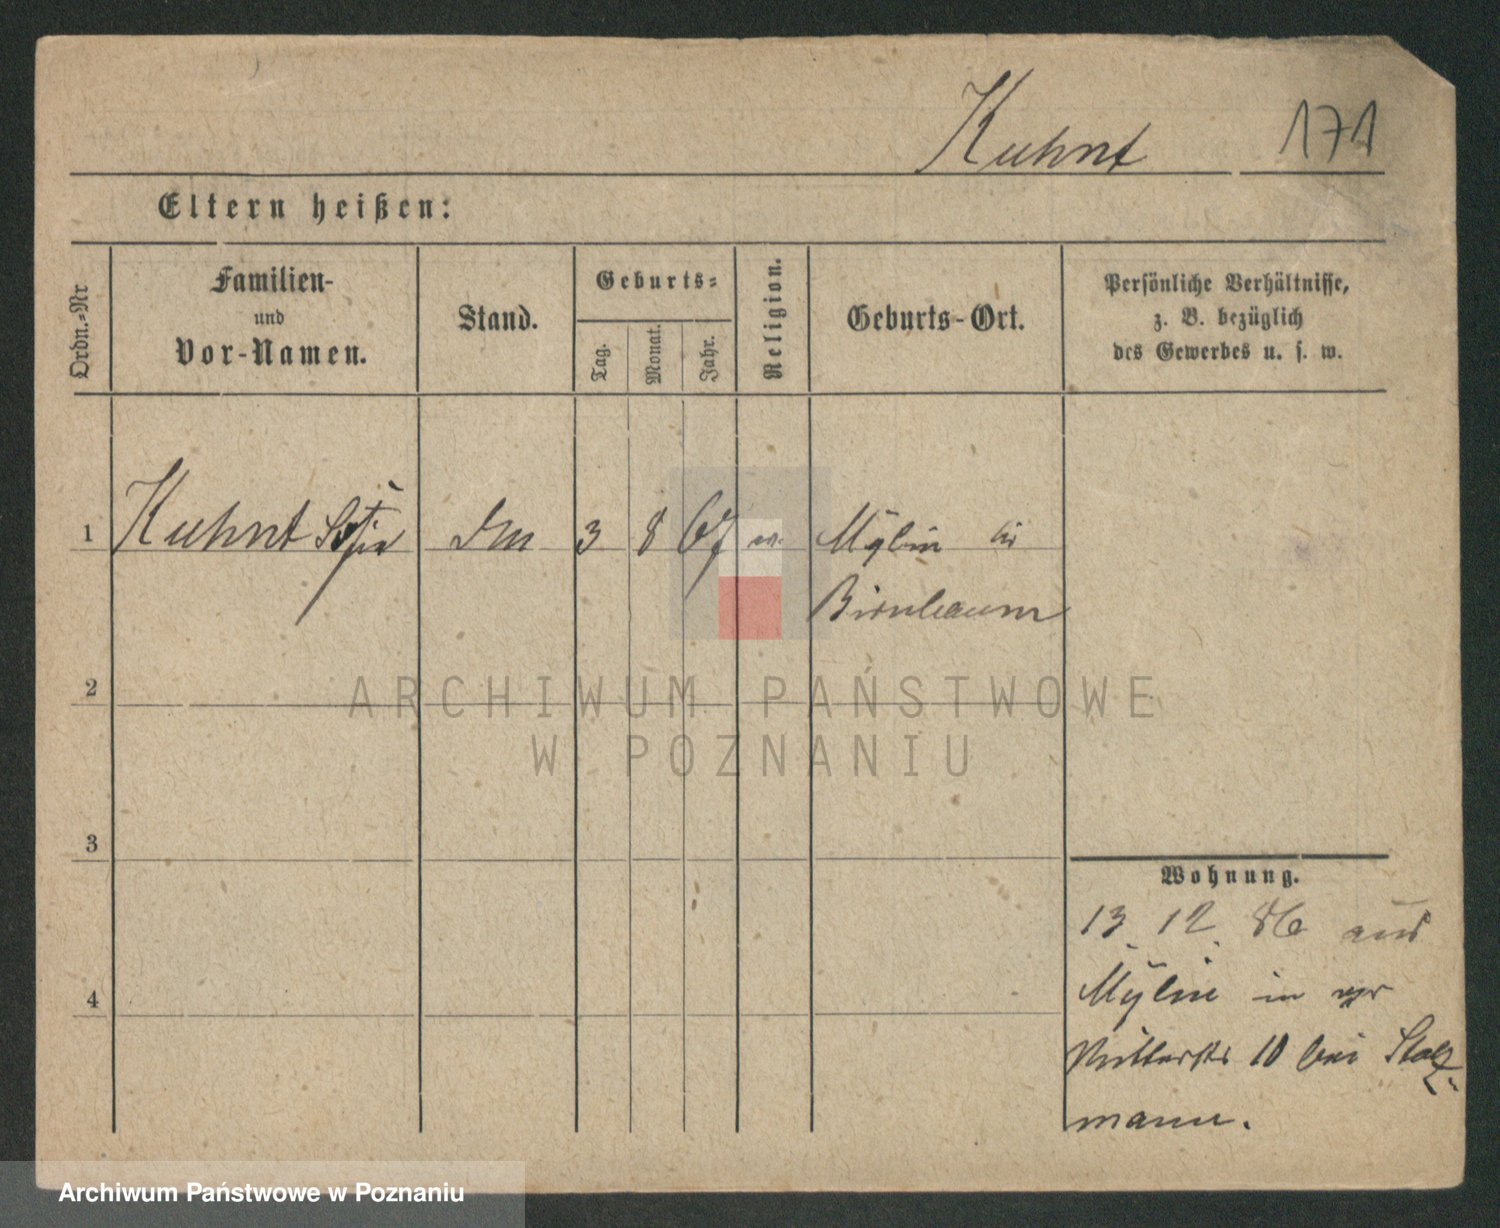 Kuhnt 171
Eltern heißen:
Ordn.-Nr
Familien-
und
Vor-Namen.
Stand.
Geburts-
Tag.
Monat.
Jahr.
Religion.
Geburts-Ort.
Persönliche Verhältnisse,
z. B. bezüglich
des Gewerbes u. s. w.
1 Kuhnt 3 8 67 Mylin bei
Birnbaum
2
ARCHIWUM PAŃSTWOWE
W POZNANIU
3
4
Wohnung.
13. 12. 86 aus
Mylin in
Ritterstr 10 bei Stolz-
mann.
Archiwum Państwowe w Poznaniu